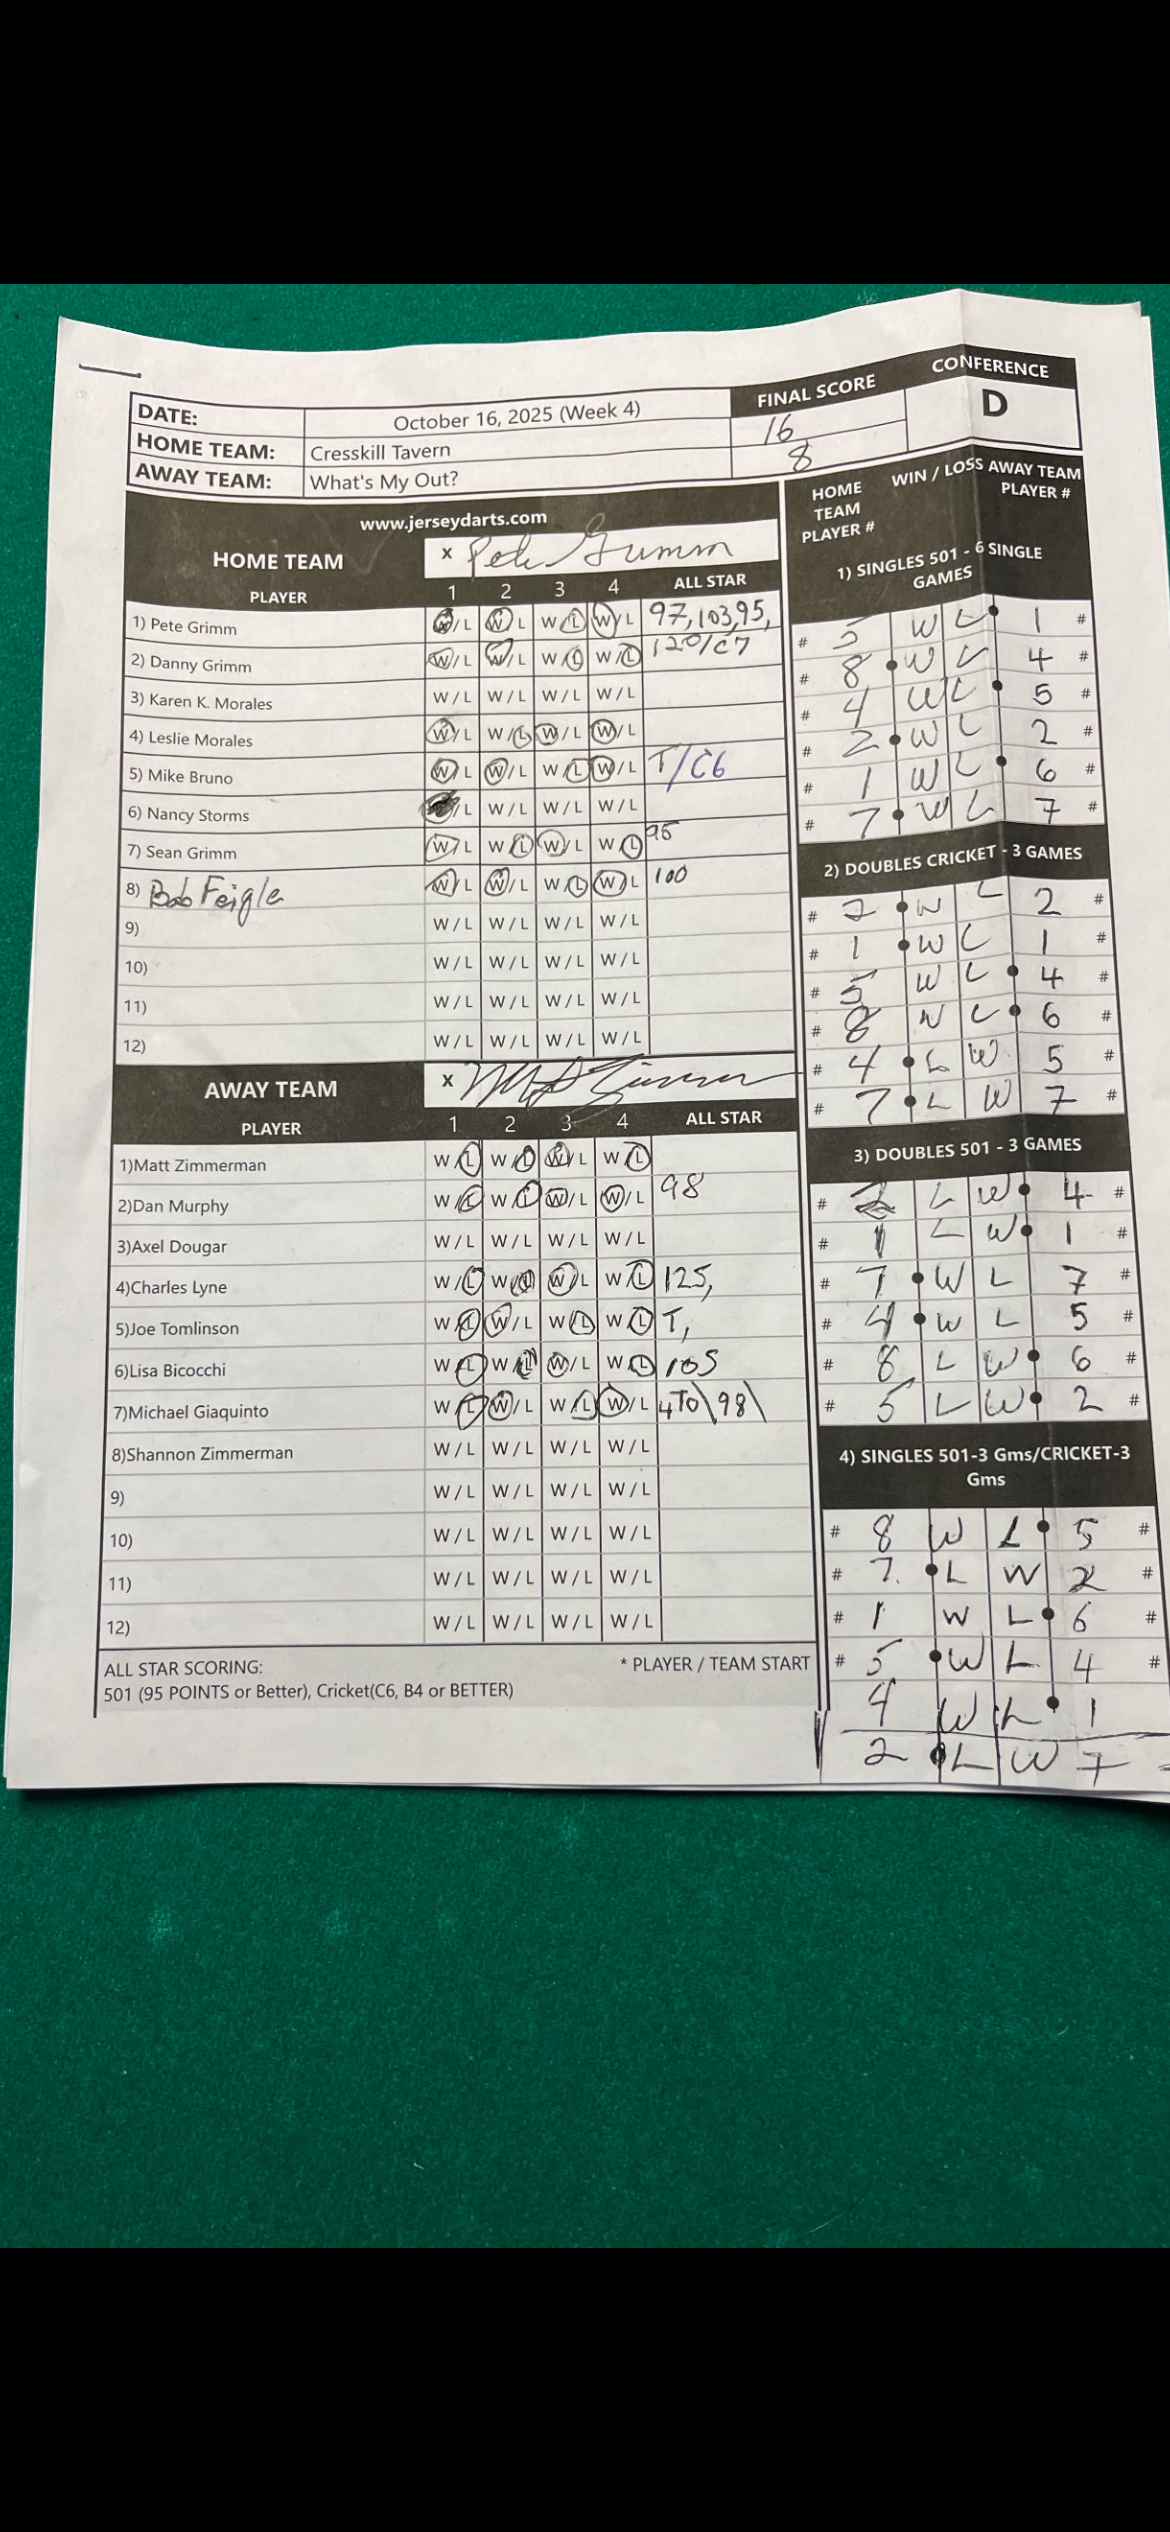 CONFERENCE
DATE: October 16, 2025 (Week 4) FINAL SCORE D
HOME TEAM: Cresskill Tavern 16
AWAY TEAM: What's My Out? 8
www.jerseydarts.com
HOME TEAM x Pete Grimm
PLAYER 1 2 3 4 ALL STAR
1) Pete Grimm W/L W L W L W/L 97,103,95,
2) Danny Grimm W/L W/L W/L W/L 120/C7
3) Karen K. Morales W/L W/L W/L W/L
4) Leslie Morales W/L W/L W/L W/L
5) Mike Bruno W/L W/L W/L W/L T/C6
6) Nancy Storms W/L W/L W/L W/L
7) Sean Grimm W/L W/L W/L W/L 95
8) Bob Feigle W/L W/L W/L W/L 100
9) W/L W/L W/L W/L
10) W/L W/L W/L W/L
11) W/L W/L W/L W/L
12) W/L W/L W/L W/L
AWAY TEAM x
PLAYER 1 2 3 4 ALL STAR
1)Matt Zimmerman W/L W/L W/L W/L
2)Dan Murphy W/L W/L W/L W/L 98
3)Axel Dougar W/L W/L W/L W/L
4)Charles Lyne W/L W/L W/L W/L 125,
5)Joe Tomlinson W/L W/L W/L W/L T,
6)Lisa Bicocchi W/L W/L W/L W/L 105
7)Michael Giaquinto W/L W/L W/L W/L 4T0\98\
8)Shannon Zimmerman W/L W/L W/L W/L
9) W/L W/L W/L W/L
10) W/L W/L W/L W/L
11) W/L W/L W/L W/L
12) W/L W/L W/L W/L
ALL STAR SCORING: * PLAYER / TEAM START
501 (95 POINTS or Better), Cricket(C6, B4 or BETTER)
HOME TEAM PLAYER # WIN / LOSS AWAY TEAM PLAYER #
1) SINGLES 501 - 6 SINGLE
GAMES
# 5 W L 1 #
# 8 W L 4 #
# 4 W L 5 #
# 2 W L 2 #
# 1 W L 6 #
# 7 W L 7 #
2) DOUBLES CRICKET - 3 GAMES
# 2 W L 2 #
# 1 W L 1 #
# 5 W L 4 #
# 8 W L 6 #
# 4 L W 5 #
# 7 L W 7 #
3) DOUBLES 501 - 3 GAMES
# 2 L W 4 #
# 1 L W 1 #
# 7 W L 7 #
# 4 W L 5 #
# 8 L W 6 #
# 5 L W 2 #
4) SINGLES 501-3 Gms/CRICKET-3
Gms
# 8 W L 5 #
# 7. L W 2 #
# 1 W L 6 #
# 5 W L 4 #
4 W L 1
2 L W 7